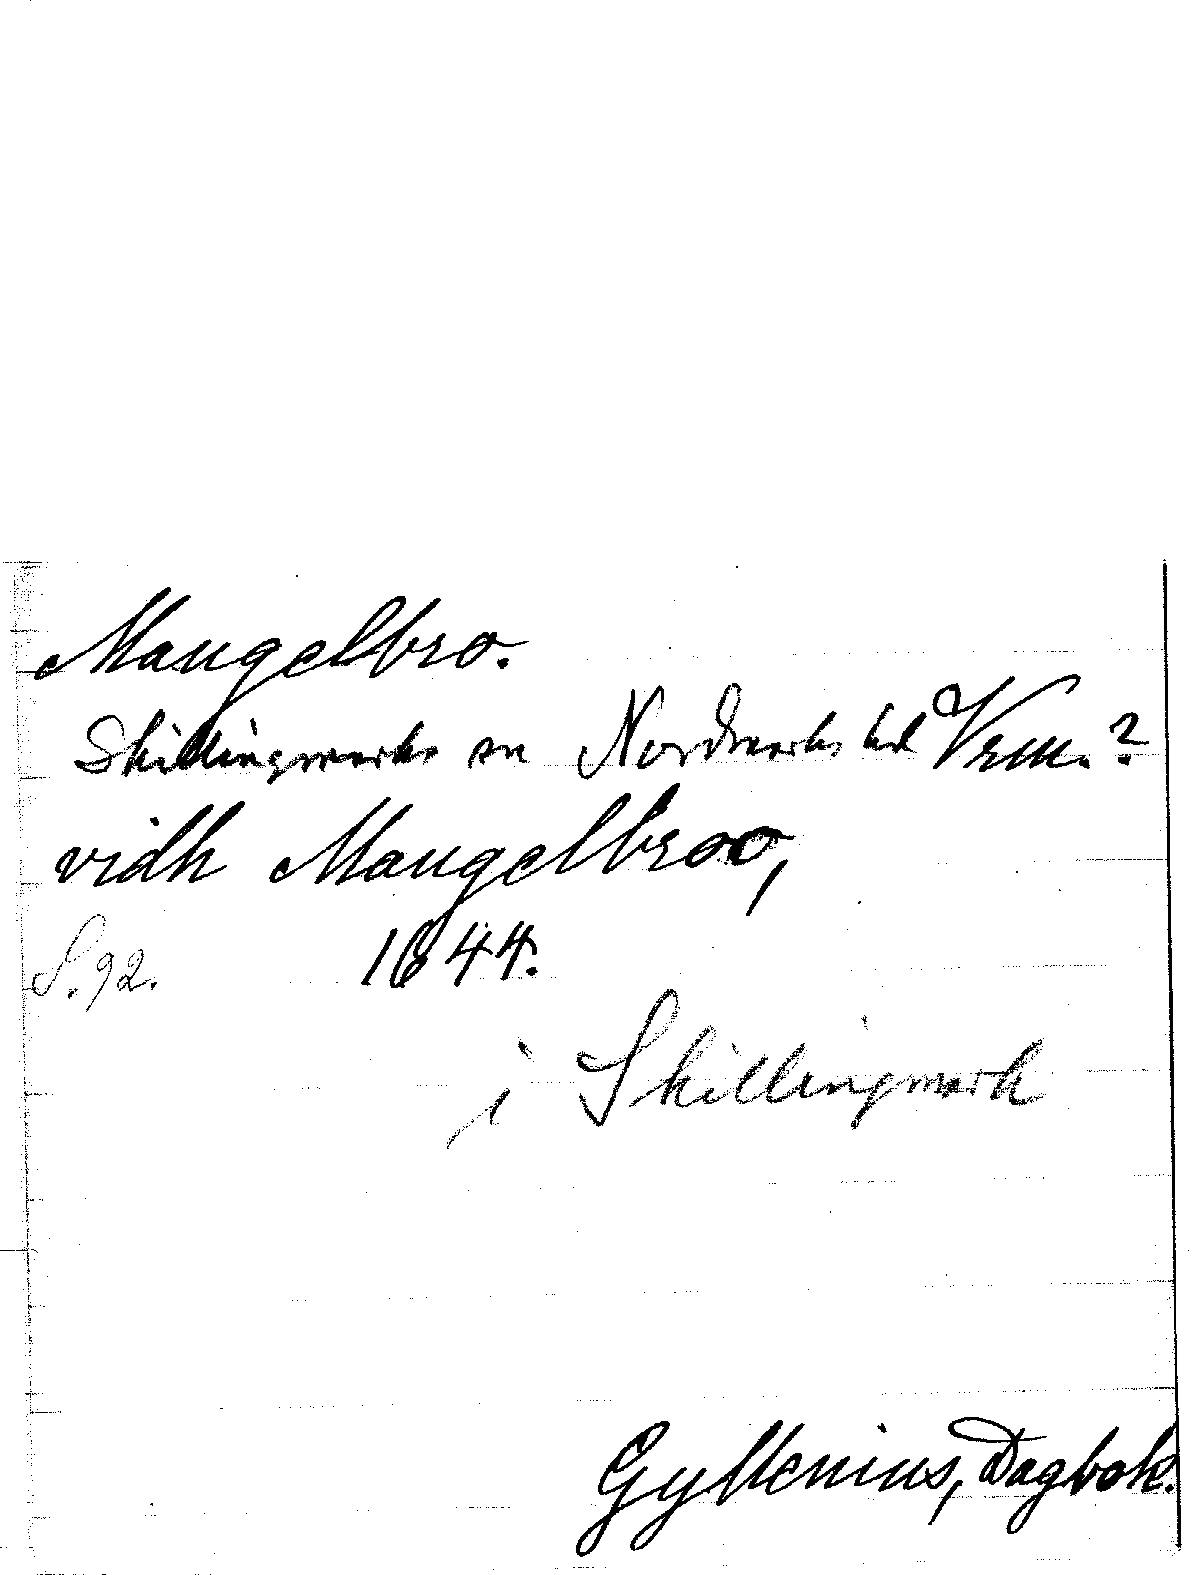 Mangelbro.
Skillingmarks sn Nordmarks hd Vrm.?
vidh Mangelbroo,
S. 92. 1644.
i Skillingmark
Gyllenius, Dagbok.